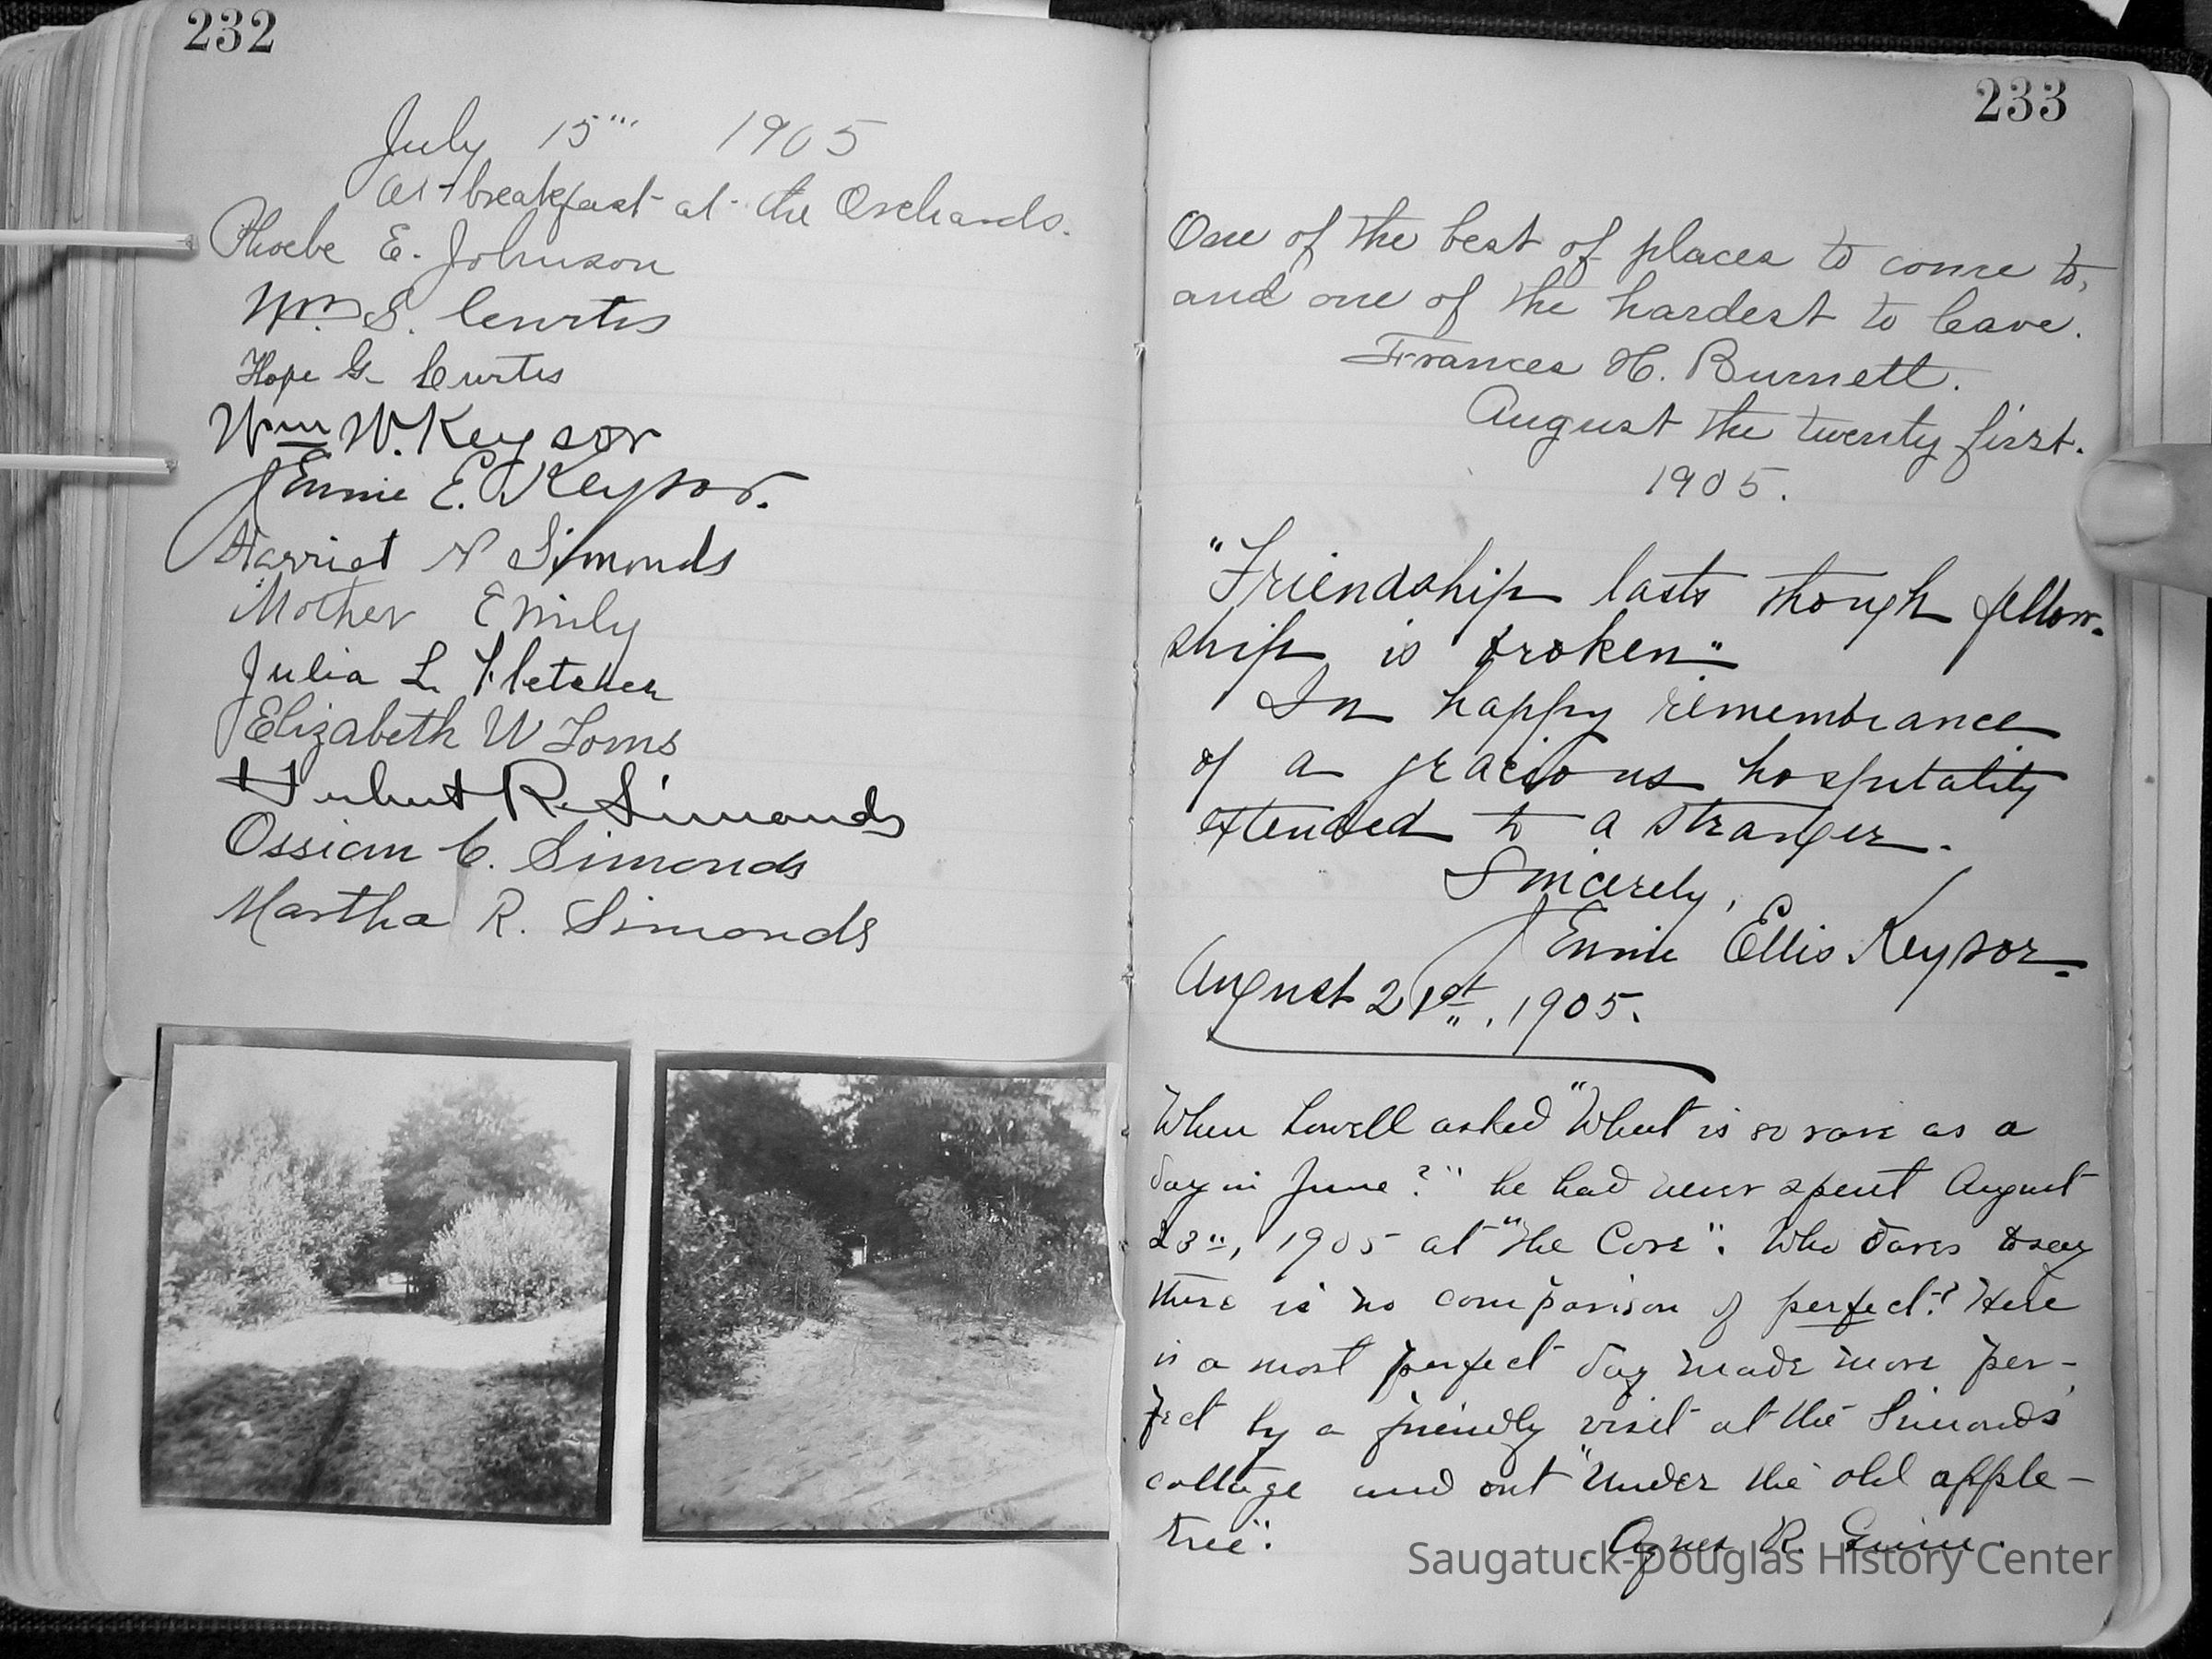 232
July 15''' 1905
At breakfast at the Orchards.
Phoebe E. Johnson
Wm. S. Curtis
Hope G. Curtis
Wm W. Keysor
Jennie E. Keysor.
Harriet N Simonds
Mother Emily
Julia L. Fletcher
Elizabeth W Loms
Herbert R. Simonds
Ossian C. Simonds
Martha R. Simonds
233
One of the best of places to come to,
and one of the hardest to leave.
Frances H. Burnett.
August the twenty first.
1905.
"Friendship lasts though fellow-
ship is broken"
In happy remembrance
of a gracious hospitality
extended to a stranger.
Sincerely,
Jennie Ellis Keysor.
August 21st, 1905.
When Lowell asked "What is so rare as a
day in June?" he had never spent August
23", 1905 at "The Cove". Who dares to say
there is no comparison of perfect? Here
is a most perfect day made more per-
fect by a friendly visit at the Simonds'
cottage and out "Under the old apple-
tree".
Agnes R.
Saugatuck-Douglas History Center